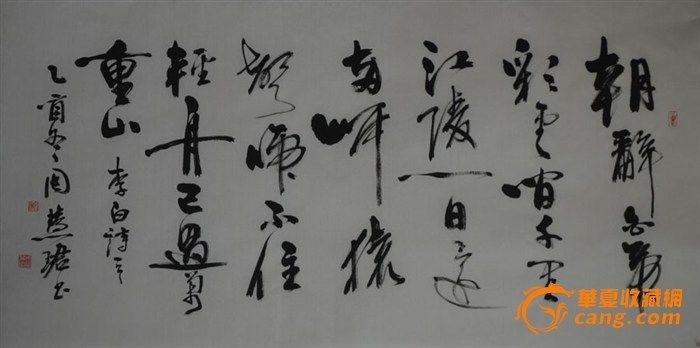 朝辭白帝
彩雲間千里
江陵一日還
兩岸猿
聲啼不住
輕舟已過萬
重山
李白詩
乙酉冬周慧珺书
華夏收藏網
cang.com